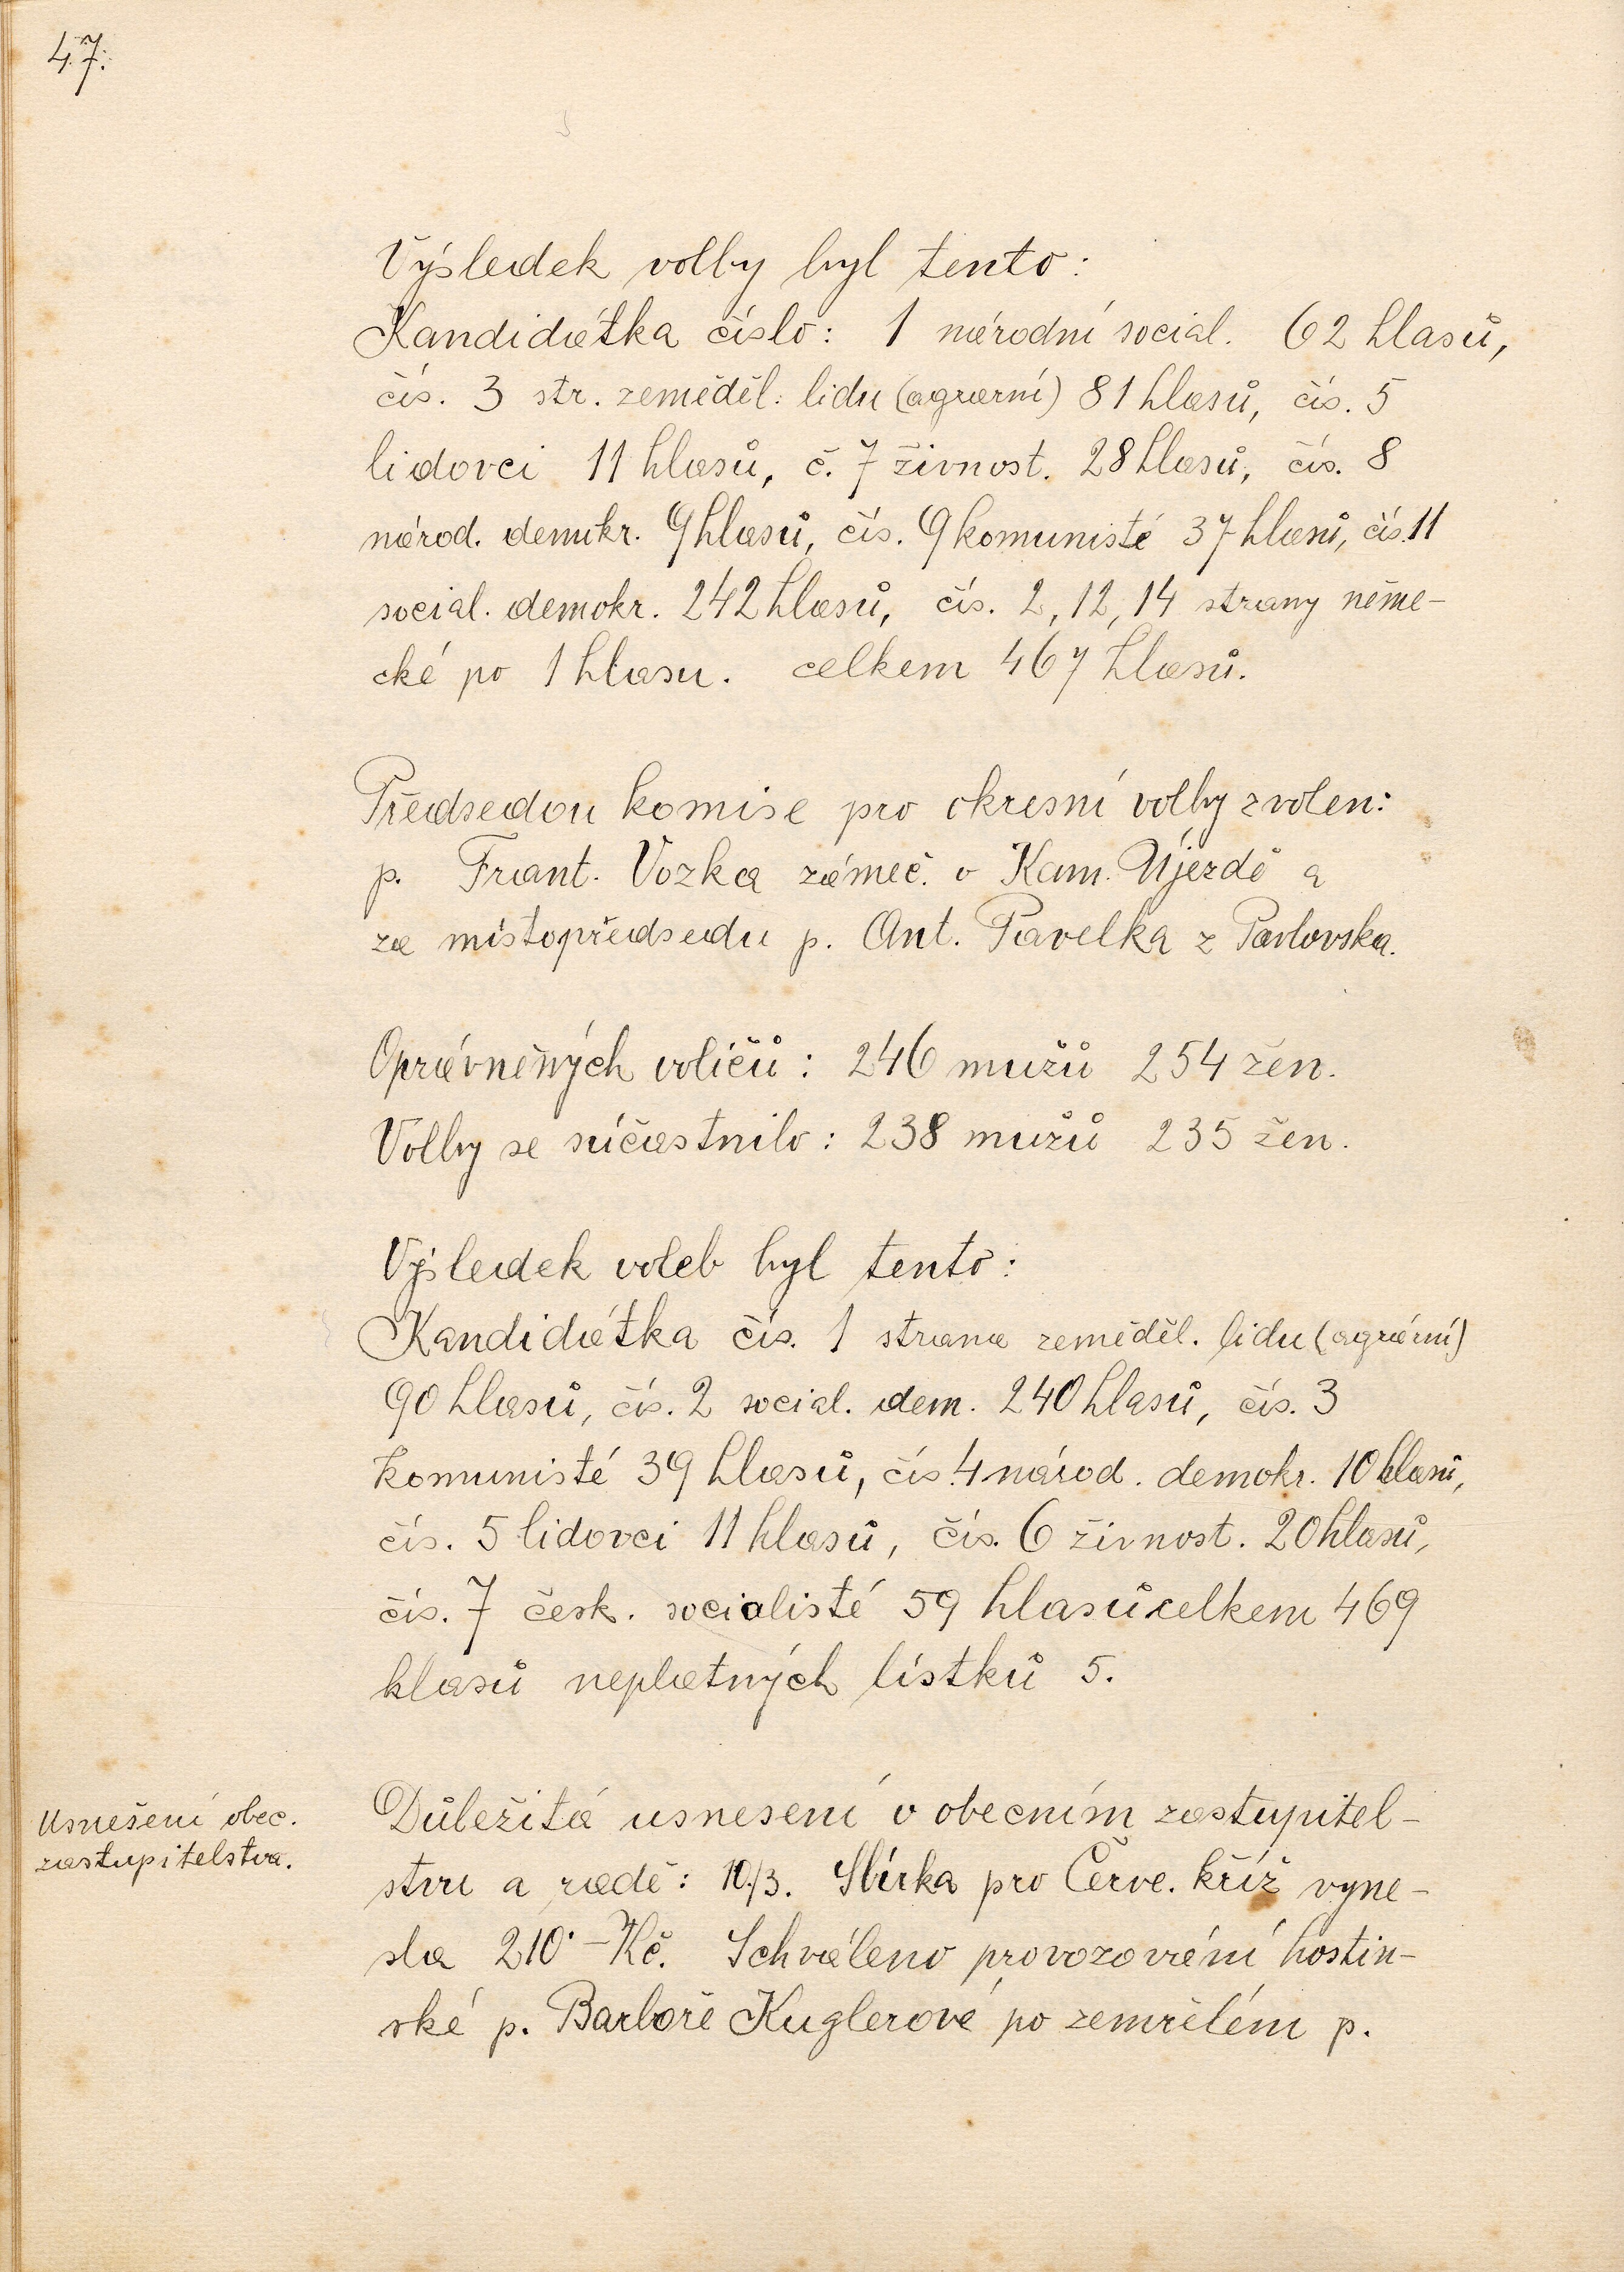 47.
Výsledek volby byl tento:
Kandidátka číslo: 1 národní social. 62 hlasů,
čís. 3 str. zeměděl. lidu (agrární) 81 hlasů, čís. 5
lidovci 11 hlasů, č. 7 živnost. 28 hlasů, čís. 8
národ. demokr. 9 hlasů, čís. 9 komunisté 37 hlasů, čís. 11
social. demokr. 242 hlasů, čís. 2, 12, 14 strany něme-
cké po 1 hlasu. celkem 467 hlasů.
Předsedou komise pro okresní volby zvolen:
p. Frant. Vozka zámeč. v Kam. Újezdě a
za místopředsedu p. Ant. Pavelka z Pavlovska.
Oprávněných voličů: 246 mužů 254 žen.
Volby se súčastnilo: 238 mužů 235 žen.
Výsledek voleb byl tento:
Kandidátka čís. 1 strana zeměděl. lidu (agrární)
90 hlasů, čís. 2 social. dem. 240 hlasů, čís. 3
komunisté 39 hlasů, čís. 4 národ. demokr. 10 hlasů,
čís. 5 lidovci 11 hlasů, čís. 6 živnost. 20 hlasů,
čís. 7 česk. socialisté 59 hlasů celkem 469
hlasů neplatných lístků 5.
Usnešení obec.
zastupitelstva.
Důležitá usnesení v obecním zastupitel-
stvu a radě: 10./3. Sbírka pro Červe. kříž vyne-
sla 210·- Kč. Schváleno provozování hostin-
ské p. Barboře Kuglerové po zemřelém p.